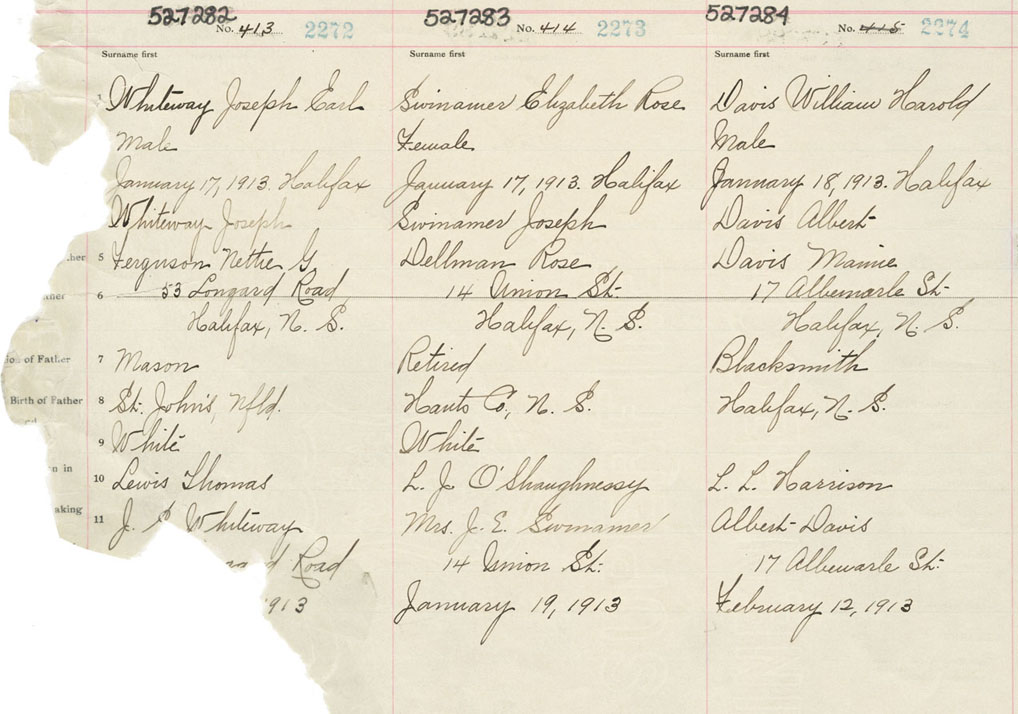 527282
No. 413 2272
Surname first
1 Whiteway Joseph Earl
Male
January 17, 1913. Halifax
Whiteway Joseph
ther 5 Ferguson Nettie G
ather 6 53 Longard Road
Halifax, N. S.
ion of Father 7 Mason
Birth of Father 8 St. John's, Nfld.
9 White
n in 10 Lewis Thomas
aking 11 J. S Whiteway
ngard Road
1913
527283
No. 414 2273
Surname first
Swinamer Elizabeth Rose
Female
January 17, 1913. Halifax
Swinamer Joseph
Dellman Rose
14 Union St.
Halifax, N. S.
Retired
Hants Co., N. S.
White
L. J. O'Shaughnessy
Mrs. J. E. Swinamer
14 Union St.
January 19, 1913
527284
No. 415 2274
Surname first
Davis William Harold
Male
January 18, 1913. Halifax
Davis Albert
Davis Mamie
17 Albemarle St.
Halifax, N. S.
Blacksmith
Halifax, N. S.
L. L. Harrison
Albert Davis
17 Albemarle St.
February 12, 1913